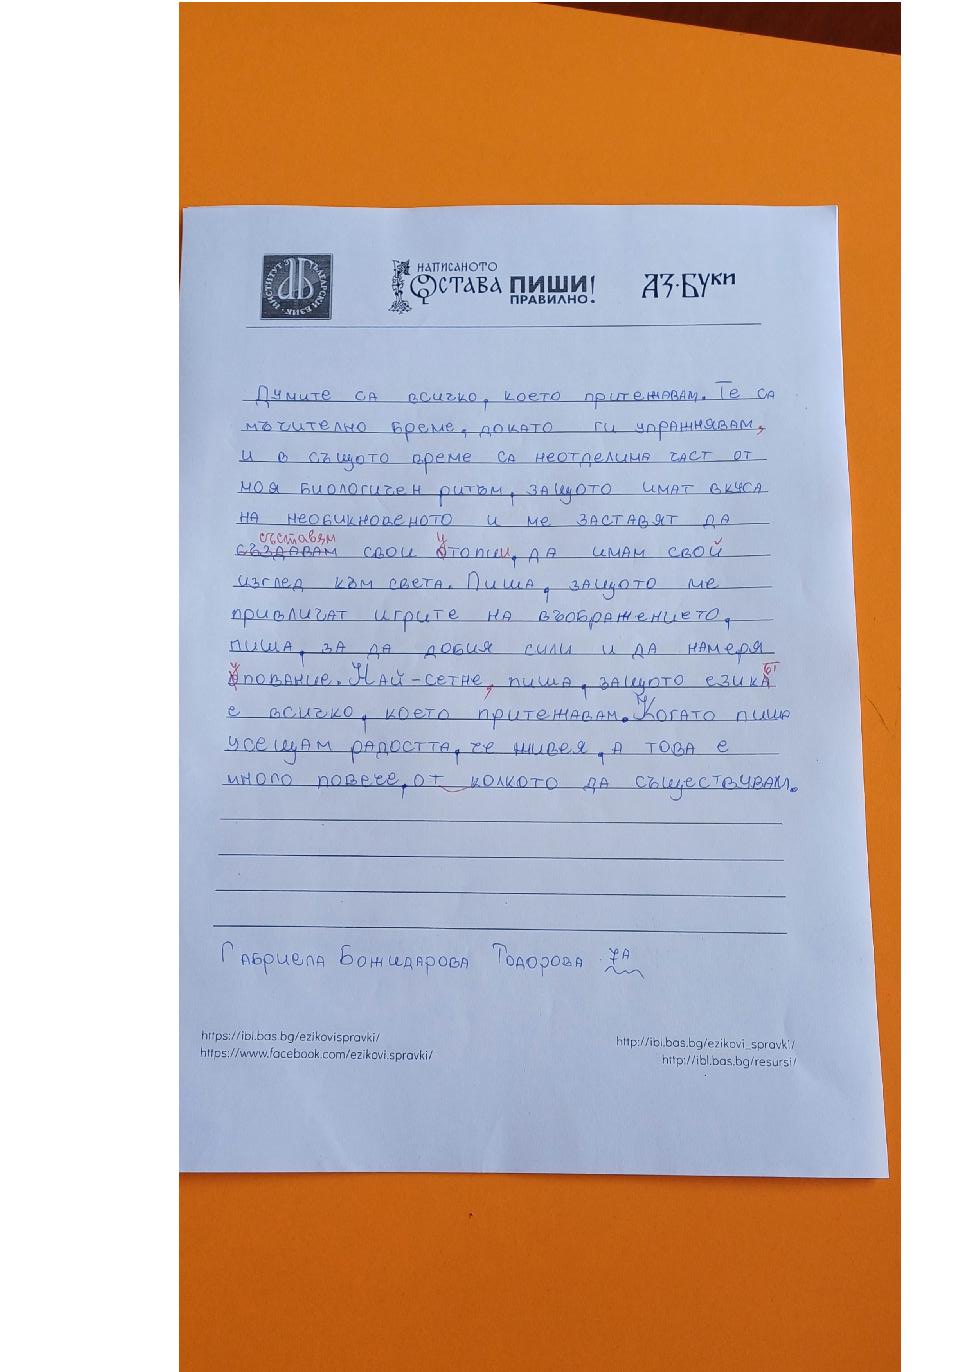 ИНСТИТУТ ЗА БЪЛГАРСКИ ЕЗИК
НАПИСАНОТО
ОСТАВА ПИШИ!
ПРАВИЛНО!
АЗ·БУКИ
Думите са всичко, което притежавам. Те са
мъчително бреме, докато ги упражнявам,
и в същото време са неотделима част от
моя биологичен ритъм, защото имат вкуса
на необикновеното и ме заставят да
съставям
създавам свои утопии, да имам свой
изглед към света. Пиша, защото ме
привличат игрите на въображението,
пиша, за да добия сили и да намеря
упование. Най-сетне, пиша, защото езикът
е всичко, което притежавам. Когато пиша
усещам радостта, че живея, а това е
много повече, от колкото да съществувам.
Габриела Божидарова Тодорова 7А
https://ibl.bas.bg/ezikovispravki/
https://www.facebook.com/ezikovi.spravki/
http://ibl.bas.bg/ezikovi_spravki/
http://ibl.bas.bg/resursi/